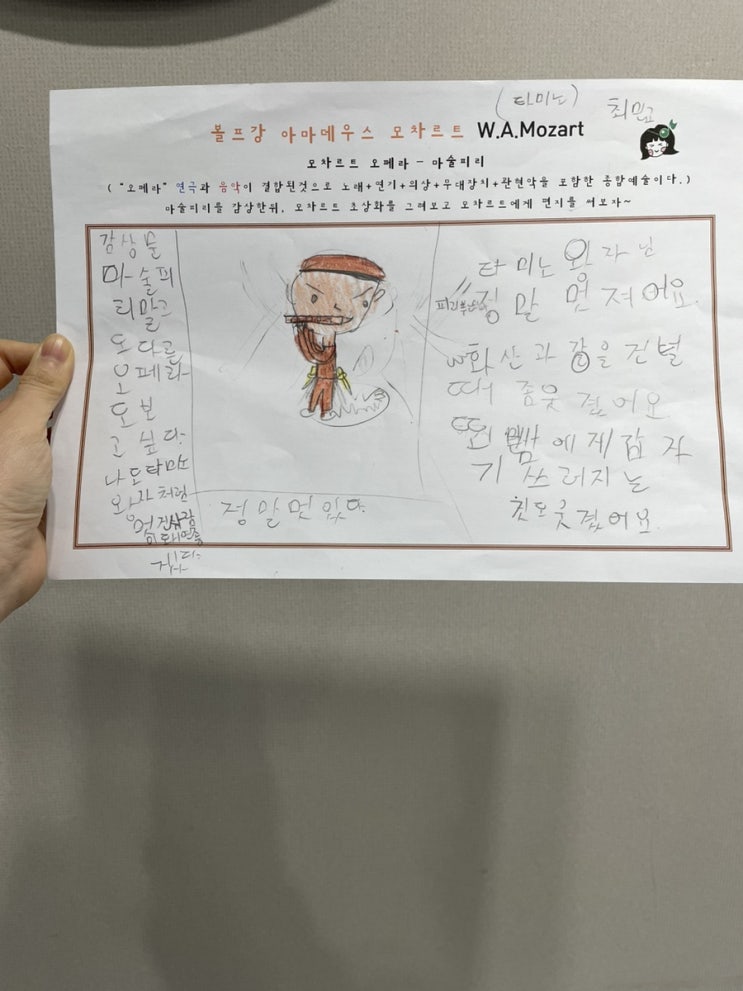 (타미노)
최민교
볼프강 아마데우스 모차르트 W.A.Mozart
모차르트 오페라 - 마술피리
( "오페라" 연극과 음악이 결합된것으로 노래+연기+의상+무대장치+관현악을 포함한 종합예술이다.)
마술피리를 감상한뒤, 모차르트 초상화를 그려보고 모차르트에게 편지를 써보자~
감상문
마술피
리말고
또다른
오페라
또보
고싶다
나도타미노
왕자처럼
멋진사람
이
정말멋있다.
타미노 왕자님
정말 멋져어요.
화산과 같을 진별
때 좀웃겼어요
또 뱀에게갑자
기 쓰러지는
것도웃겼어요.